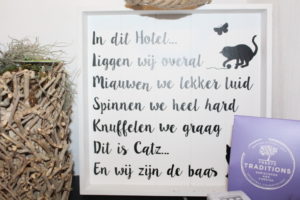 In dit Hotel...
Liggen wij overal
Miauwen we lekker luid
Spinnen we heel hard
Knuffelen we graag
Dit is Catz...
En wij zijn de baas
TRADITIONS